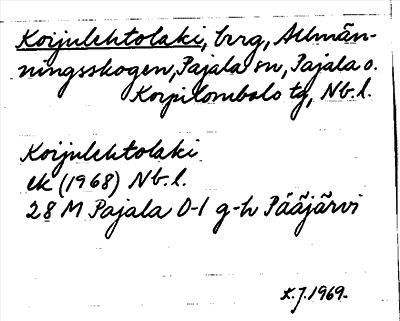 Koijulehtolaki, berg, Allmän-
ningsskogen, Pajala sn, Pajala o.
Korpilombolo tg, Nb.l.
Koijulehtolaki
ek (1968) Nb.l.
28 M Pajala 0-1 g-h Pääjärvi
K.J. 1969.